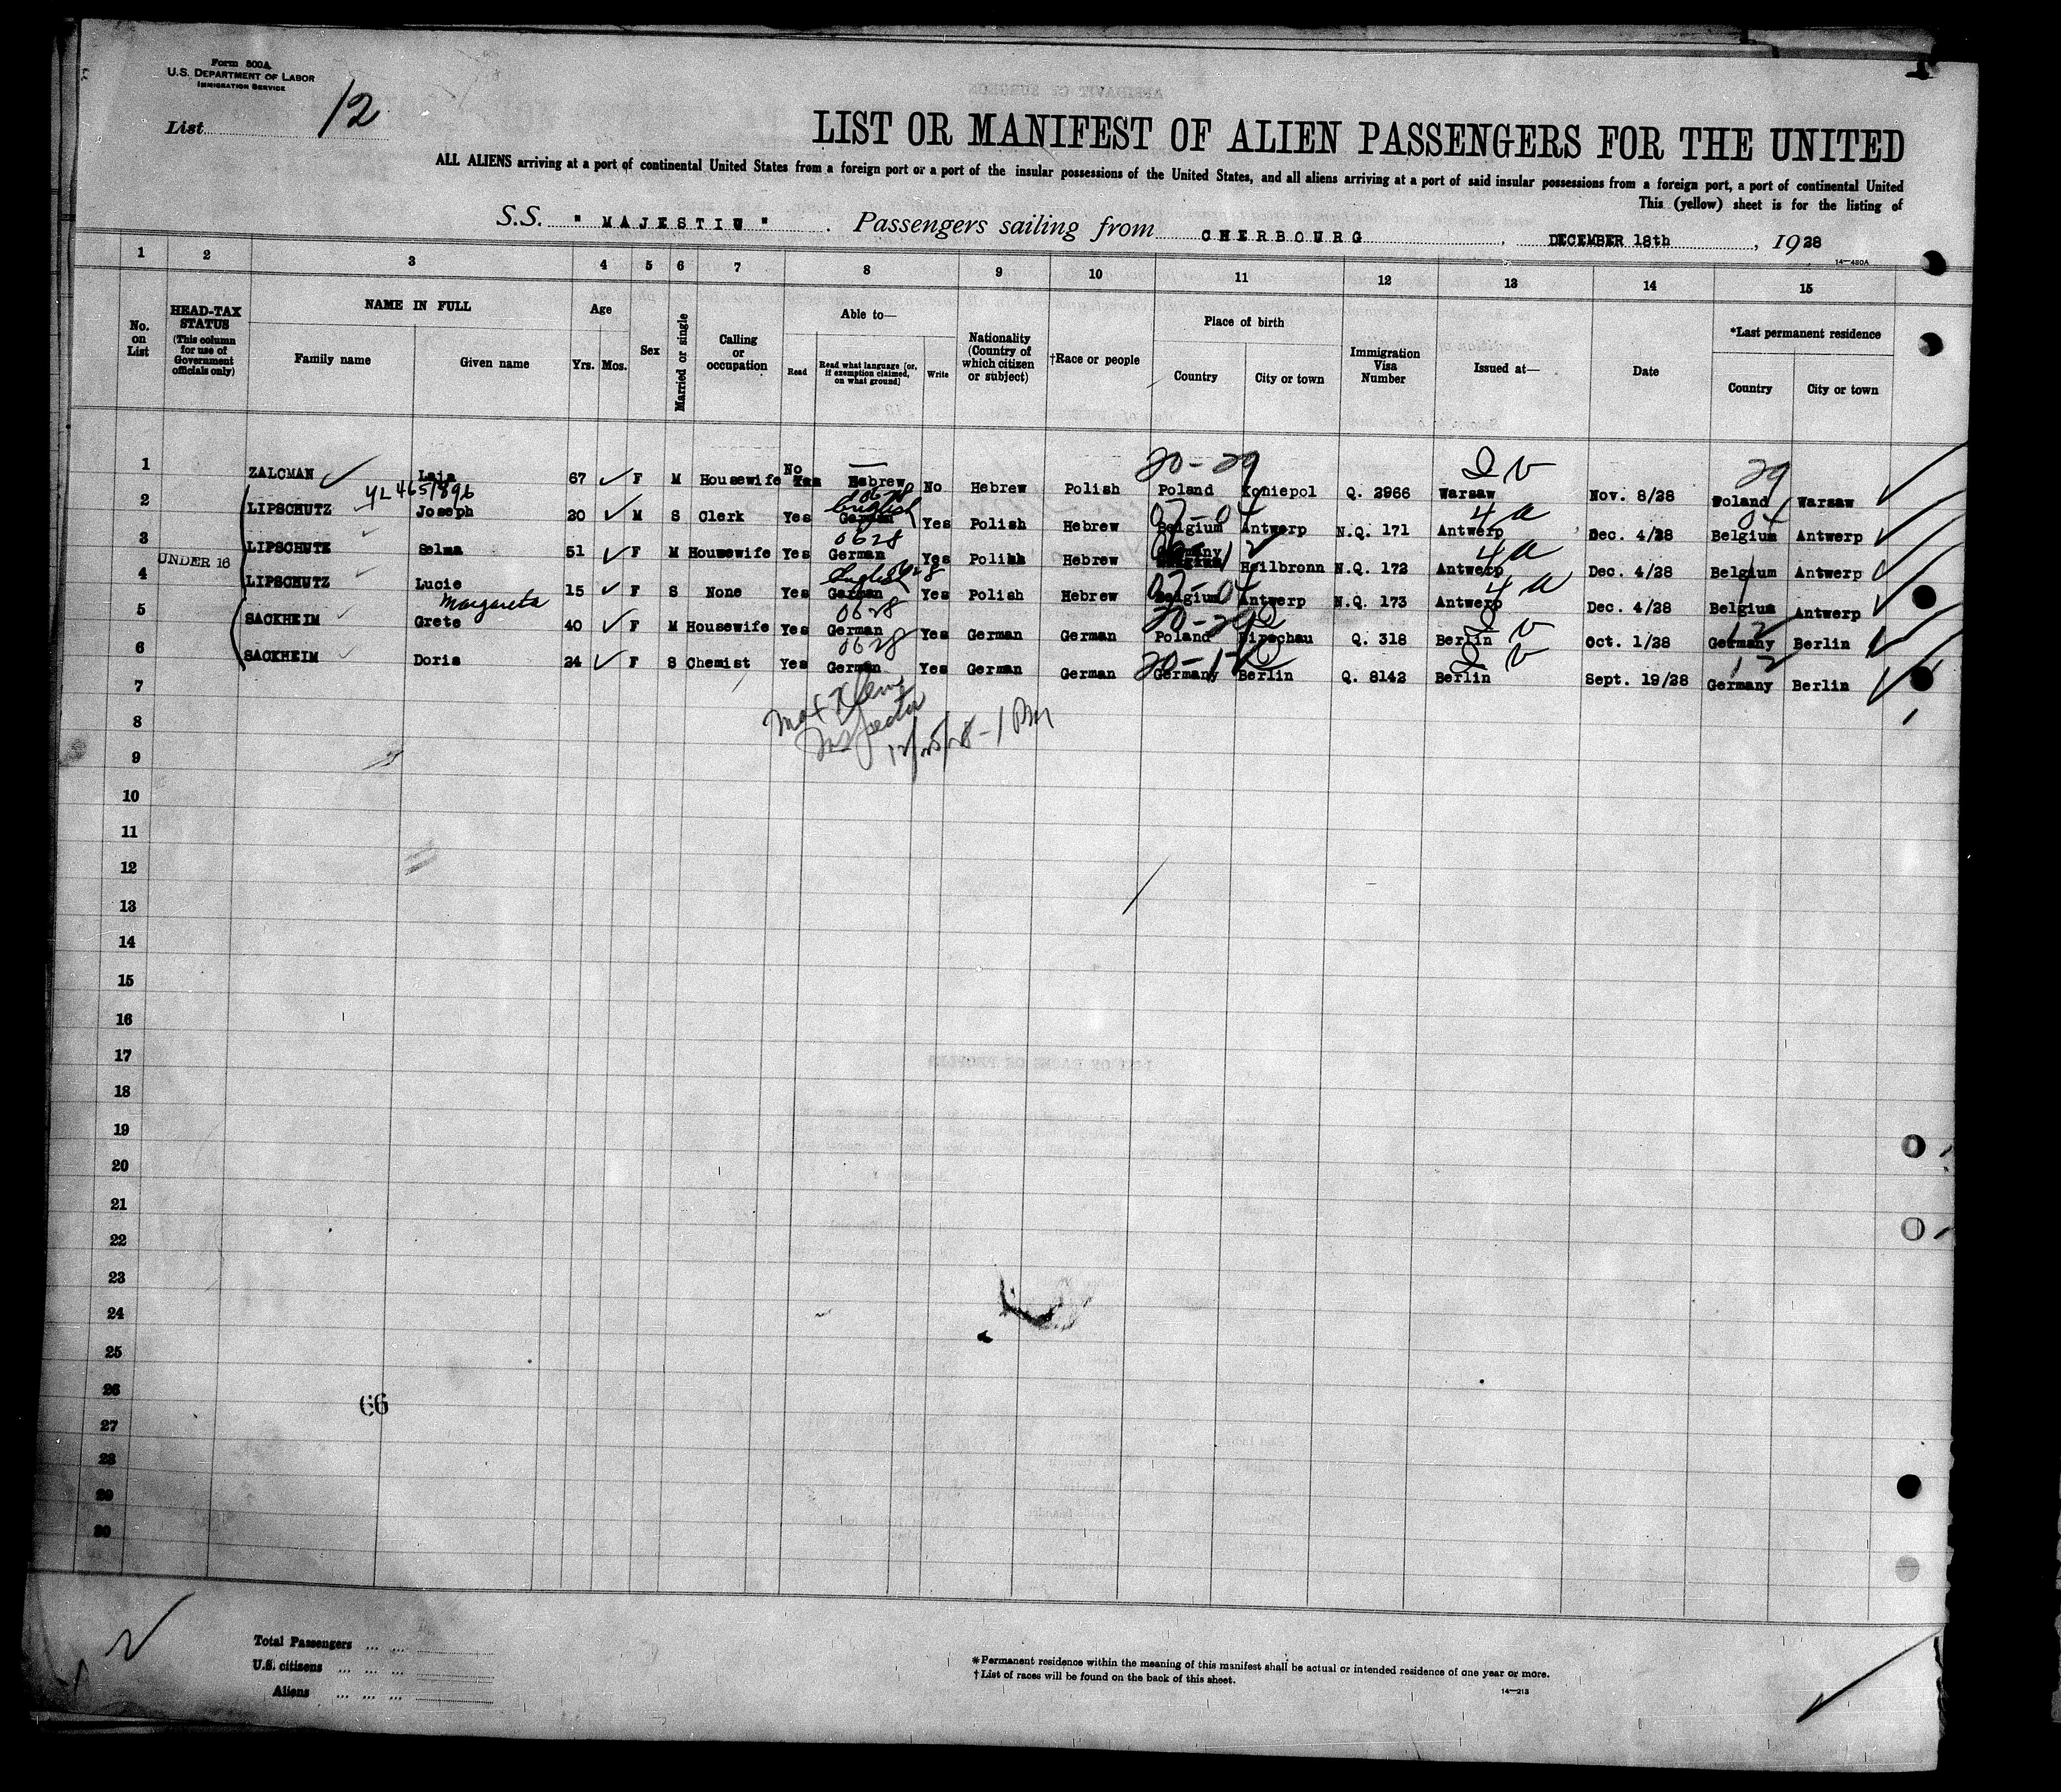 Form 500A
U.S. DEPARTMENT OF LABOR
IMMIGRATION SERVICE
List 12
LIST OR MANIFEST OF ALIEN PASSENGERS FOR THE UNITED
ALL ALIENS arriving at a port of continental United States from a foreign port or a port of the insular possessions of the United States, and all aliens arriving at a port of said insular possessions from a foreign port, a port of continental United
This (yellow) sheet is for the listing of
S.S. " MAJESTIC " . Passengers sailing from CHERBOURG , DECEMBER 18th , 1928
14—480A
1 2 3 4 5 6 7 8 9 10 11 12 13 14 15
No. on List
HEAD-TAX STATUS (This column for use of Government officials only)
NAME IN FULL
Family name Given name
Age
Yrs. Mos.
Sex
Married or single
Calling or occupation
Able to—
Read Read what language [or, if exemption claimed, on what ground] Write
Nationality (Country of which citizen or subject)
†Race or people
Place of birth
Country City or town
Immigration Visa Number
Issued at—
Date
*Last permanent residence
Country City or town
20-29 2 V 29
1 ZALCMAN Laja 67 F M Housewife No Hebrew No Hebrew Polish Poland Koniepol Q. 2966 Warsaw Nov. 8/28 Poland Warsaw
4L 465/896 0628 07-04 4 a 04
2 LIPSCHUTZ Joseph 20 M S Clerk Yes English German Yes Polish Hebrew Belgium Antwerp N.Q. 171 Antwerp Dec. 4/28 Belgium Antwerp
0628 4 a
3 LIPSCHUTZ Selma 51 F M Housewife Yes German Yes Polish Hebrew Germany Belgium Heilbronn N.Q. 172 Antwerp Dec. 4/28 Belgium Antwerp
English 0628 07-04 4 a
4 UNDER 16 LIPSCHUTZ Lucie 15 F S None Yes German Yes Polish Hebrew Belgium Antwerp N.Q. 173 Antwerp Dec. 4/28 Belgium Antwerp
Margareta 0628 2 V 12
5 SACKHEIM Grete 40 F M Housewife Yes German Yes German German Poland Dirschau Q. 318 Berlin Oct. 1/28 Germany Berlin
0628 20-12 2 V 12
6 SACKHEIM Doris 24 F S Chemist Yes German Yes German German Germany Berlin Q. 8142 Berlin Sept. 19/28 Germany Berlin
7
8
Inspector
12/25/28-1 PM
9
10
11
12
13
14
15
16
17
18
19
20
21
22
23
24
25
26
66
27
28
29
30
Total Passengers ... ...
U.S. citizens ... ... ...
Aliens ... ... ...
*Permanent residence within the meaning of this manifest shall be actual or intended residence of one year or more.
†List of races will be found on the back of this sheet.
14—213